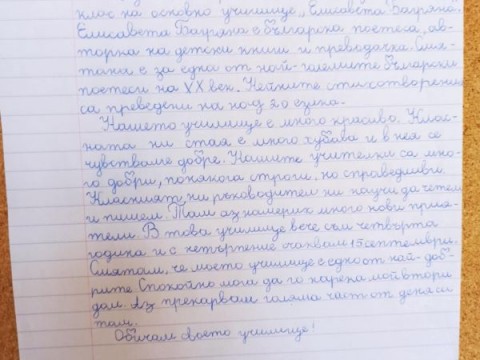 клас на основно училище „Елисавета Багряна.
Елисавета Багряна е българска поетеса, ав-
торка на детски книги и преводачка. Смя-
тана е за една от най-големите български
поетеси на XX век. Нейните стихотворения
са преведени на над 20 езика.
Нашето училище е много красиво. Клас-
ната ни стая е много хубава и в нея се
чувстваме добре. Нашите учителки са мно-
го добри, понякога строги, но справедливи.
Класният ни ръководител ни научи да четем
и пишем. Там аз намерих много нови прия-
тели. В това училище вече съм четвърта
година и с нетърпение очаквам 15 септември.
Смятам, че моето училище е едно от най-доб-
рите. Спокойно мога да го нарека мой втори
дом. Аз прекарвам голяма част от деня си
там.
Обичам своето училище!